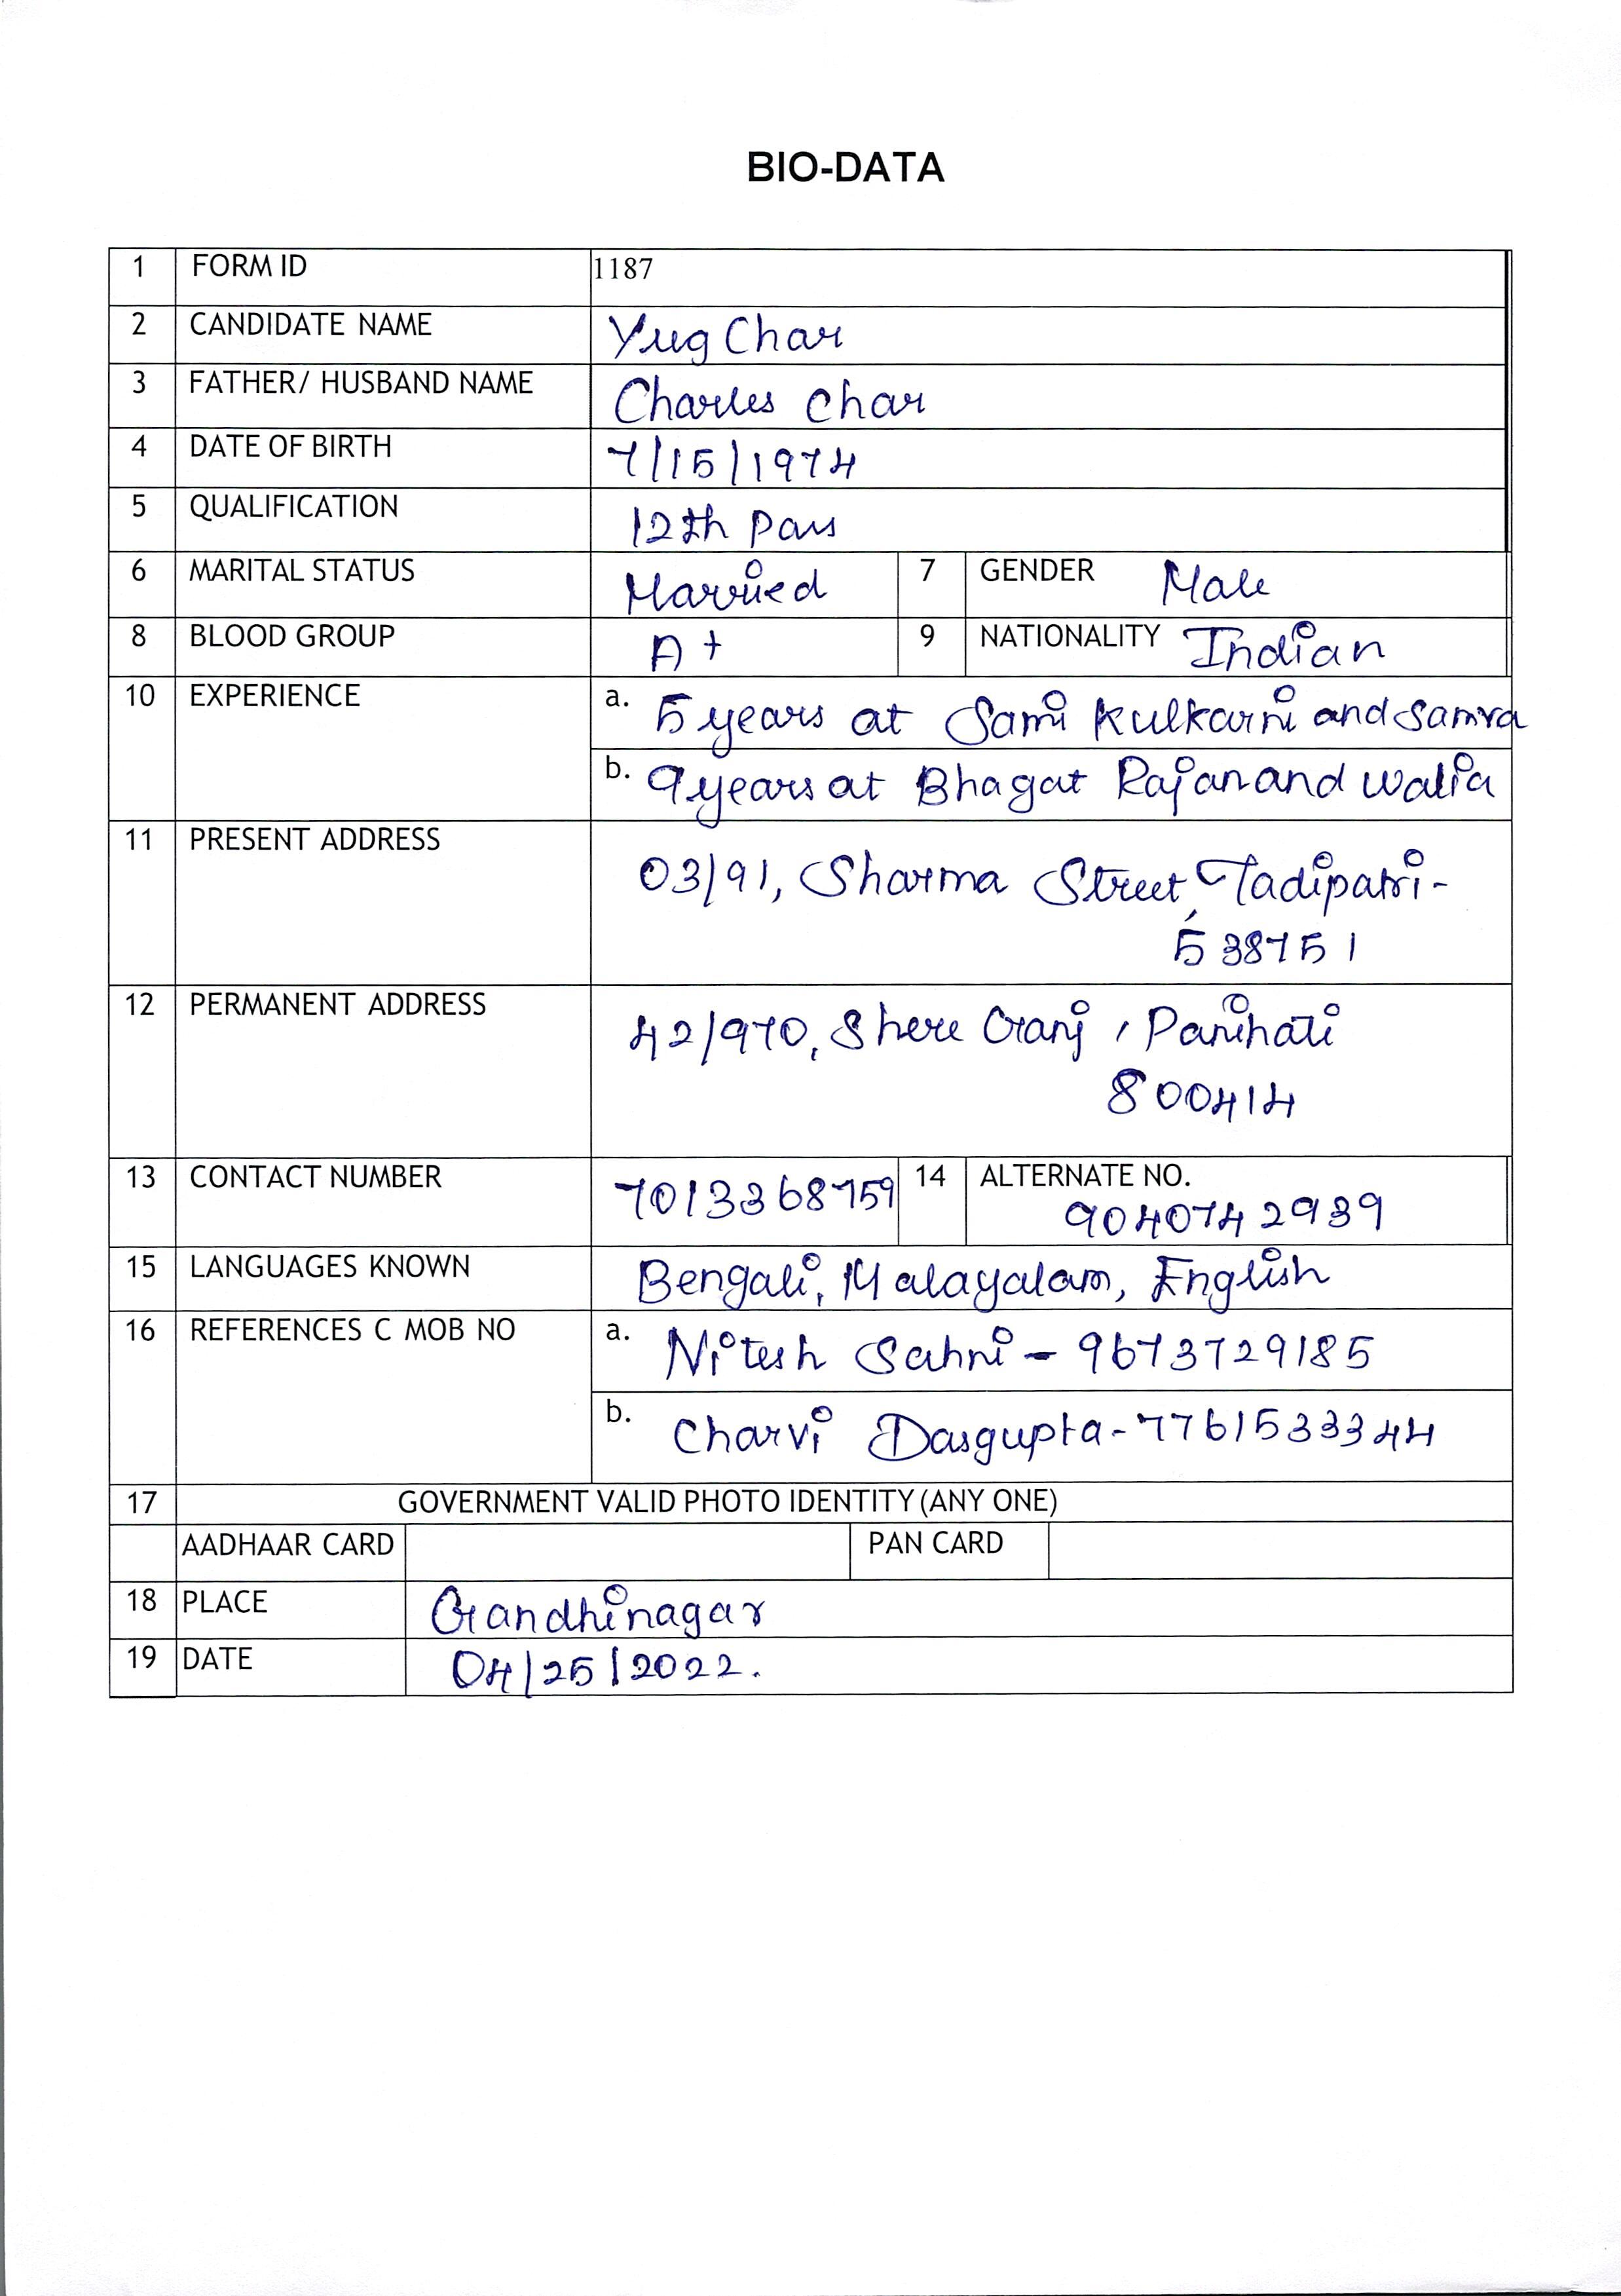 BIO-DATA
1 FORM ID 1187
2 CANDIDATE NAME Yug Char
3 FATHER/ HUSBAND NAME Charles Char
4 DATE OF BIRTH 7/15/1974
5 QUALIFICATION 12th Pass
6 MARITAL STATUS Married 7 GENDER Male
8 BLOOD GROUP A+ 9 NATIONALITY Indian
10 EXPERIENCE a. 5 years at Sami Kulkarni and Samra
b. 9 years at Bhagat Rajan and Walia
11 PRESENT ADDRESS 03/91, Sharma Street, Tadipatri-
538751
12 PERMANENT ADDRESS 42/970, Shere Ganj, Panihati
800414
13 CONTACT NUMBER 7013368759 14 ALTERNATE NO.
9040742939
15 LANGUAGES KNOWN Bengali, Malayalam, English
16 REFERENCES C MOB NO a. Nitesh Sahni - 9673729185
b. Charvi Dasgupta - 7761533344
17 GOVERNMENT VALID PHOTO IDENTITY (ANY ONE)
AADHAAR CARD PAN CARD
18 PLACE Gandhinagar
19 DATE 04/25/2022.